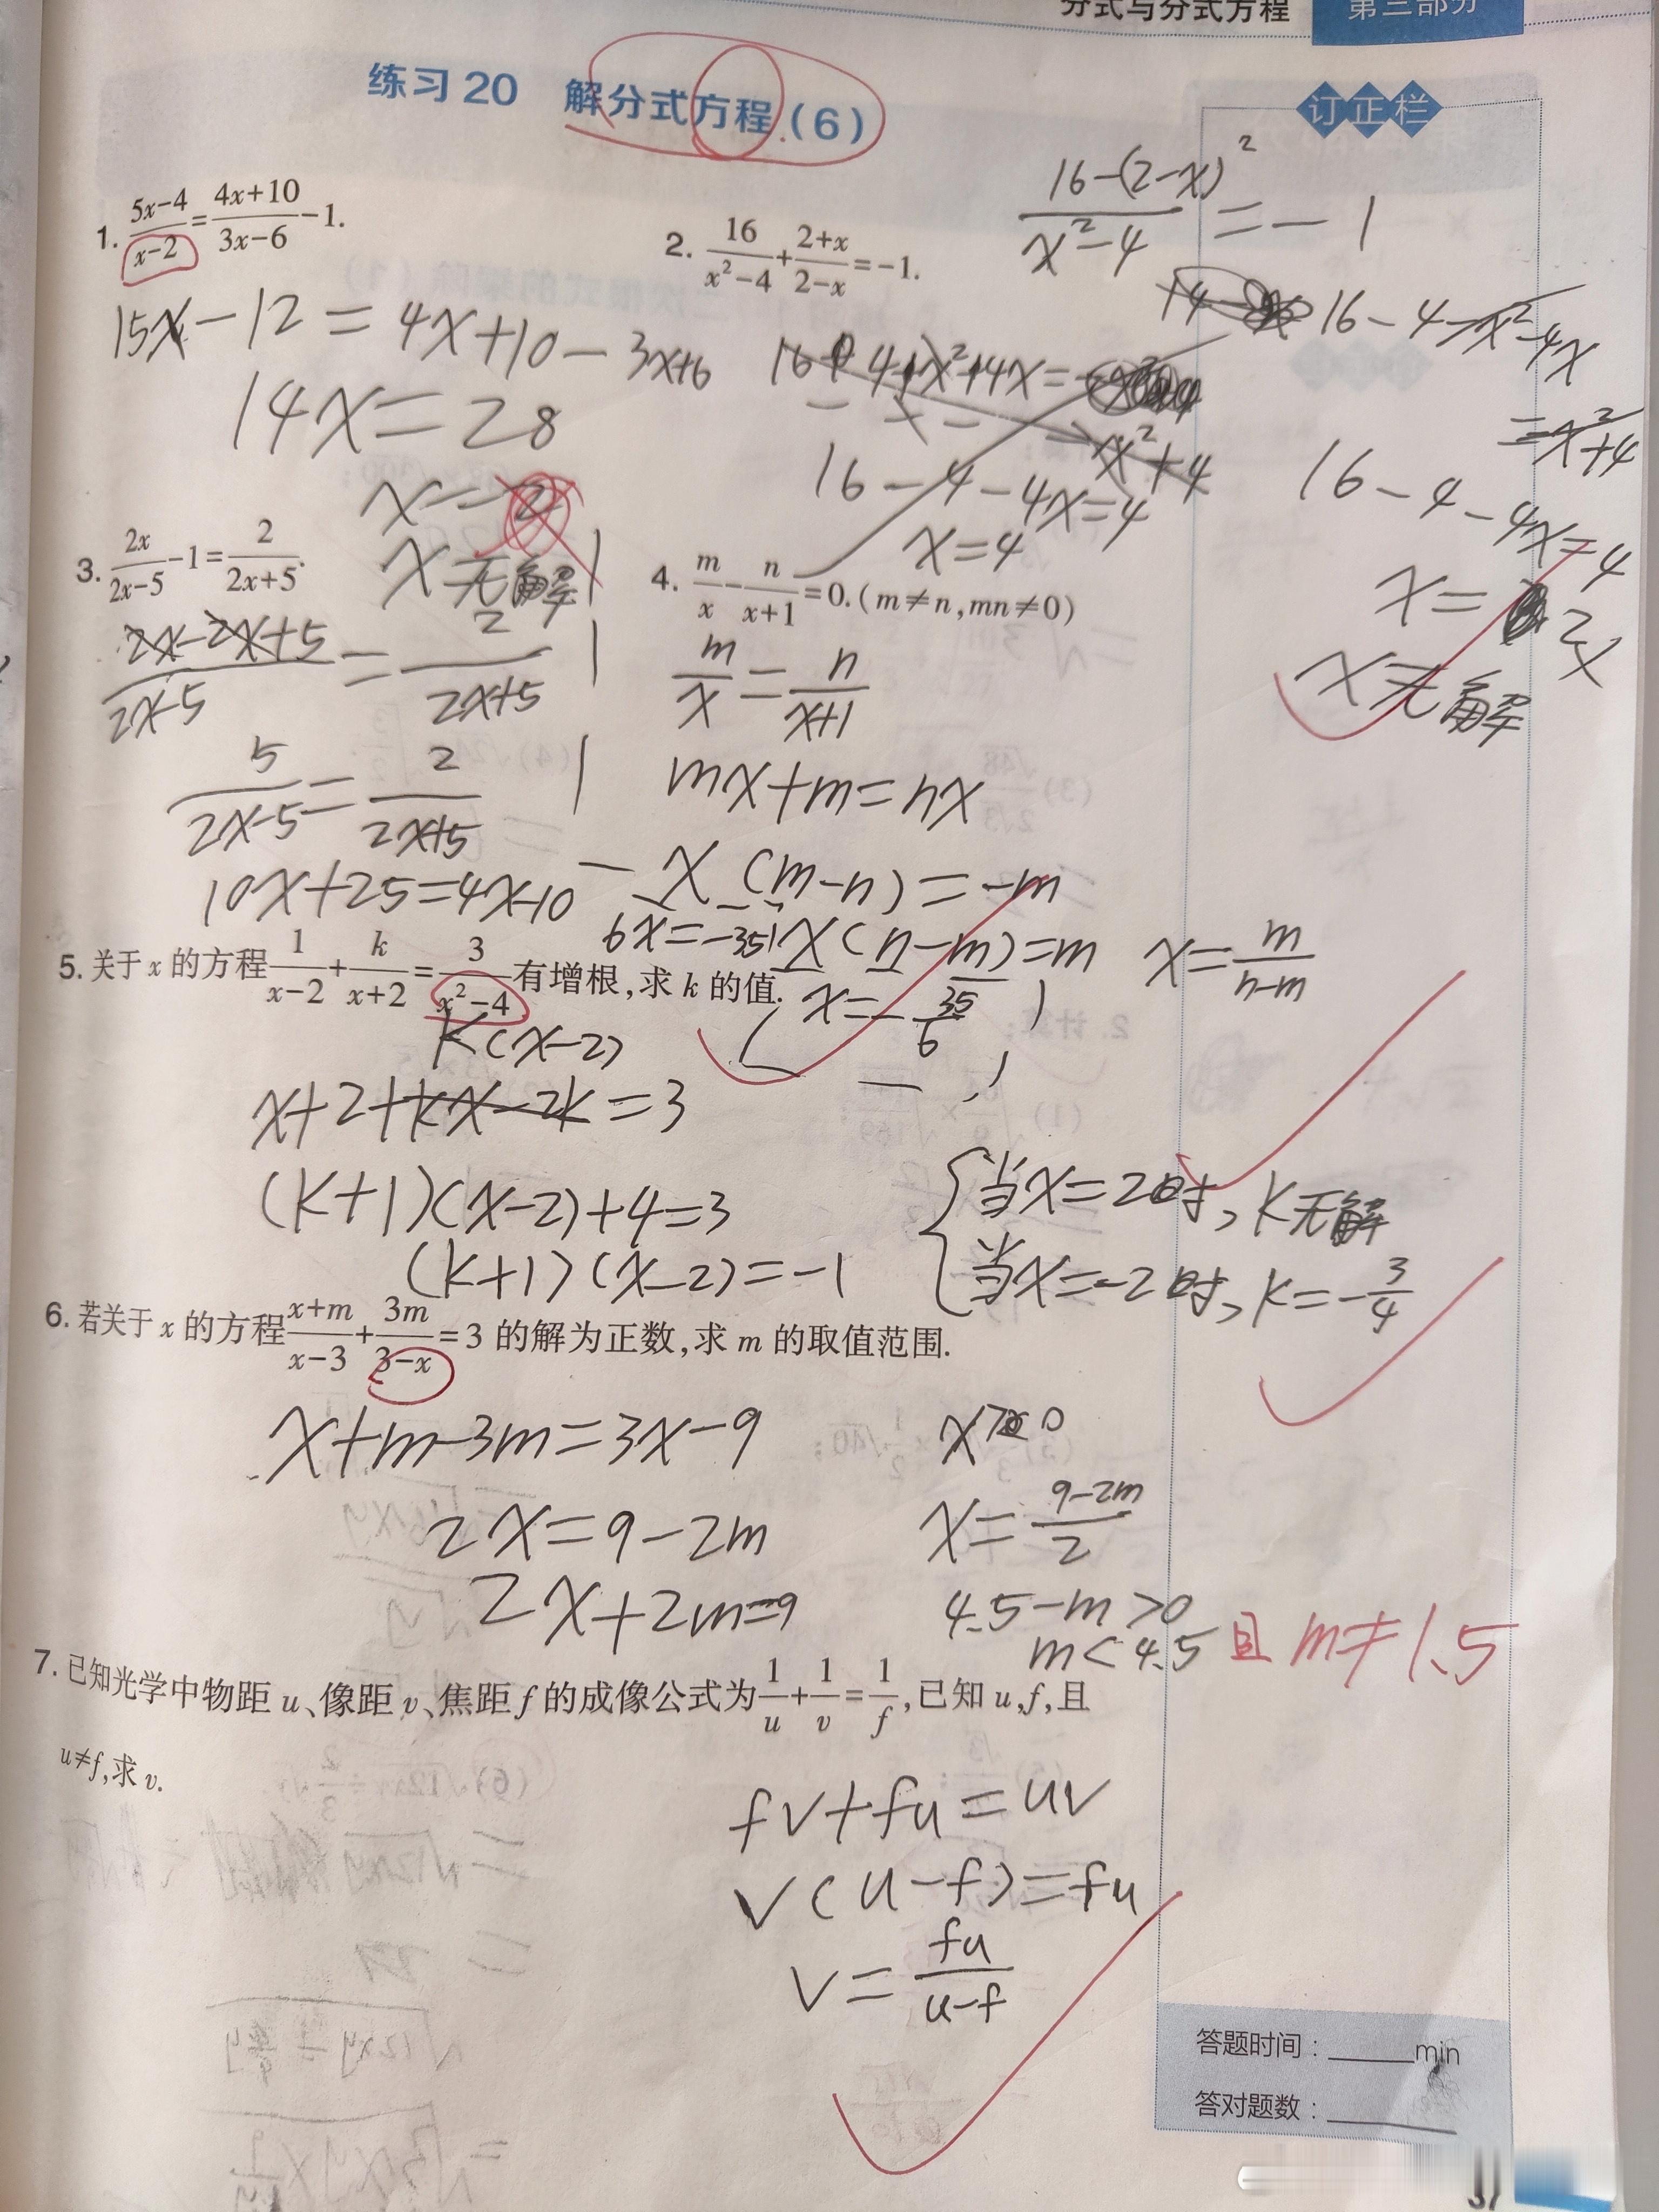 分式与分式方程 第三部分
练习20 解分式方程(6)
订正栏
1. \frac{5x-4}{x-2}=\frac{4x+10}{3x-6}-1.
15x-12=4x+10-3x+6
14x=28
x=2
x无解
2. \frac{16}{x^2-4}+\frac{2+x}{2-x}=-1.
\frac{16-(2-x)^2}{x^2-4}=-1
16-4-x^2-4x
=-x^2+4
16-4-4x=4
x=4
16-4-4x=4
x=2
x无解
3. \frac{2x}{2x-5}-1=\frac{2}{2x+5}.
\frac{2x-2x+5}{2x-5}=\frac{2}{2x+5}
\frac{5}{2x-5}=\frac{2}{2x+5}
10x+25=4x-10
6x=-35
x=-\frac{35}{6}
4. \frac{m}{x}-\frac{n}{x+1}=0.(m≠n,mn≠0)
\frac{m}{x}=\frac{n}{x+1}
mx+m=nx
x(m-n)=-m
x(n-m)=m x=\frac{m}{n-m}
5. 关于x的方程\frac{1}{x-2}+\frac{k}{x+2}=\frac{3}{x^2-4}有增根,求k的值.
k(x-2)
x+2+kx-2k=3
(k+1)(x-2)+4=3
(k+1)(x-2)=-1
当x=2时,k无解
当x=-2时,k=-\frac{3}{4}
6. 若关于x的方程\frac{x+m}{x-3}+\frac{3m}{3-x}=3的解为正数,求m的取值范围.
x+m-3m=3x-9
2x=9-2m
2x+2m=9
x>0
x=\frac{9-2m}{2}
4.5-m>0
m<4.5 且m≠1.5
7. 已知光学中物距u、像距v、焦距f的成像公式为\frac{1}{u}+\frac{1}{v}=\frac{1}{f},已知u,f,且
u≠f,求v.
fv+fu=uv
v(u-f)=fu
v=\frac{fu}{u-f}
答题时间:______min
答对题数:______
37